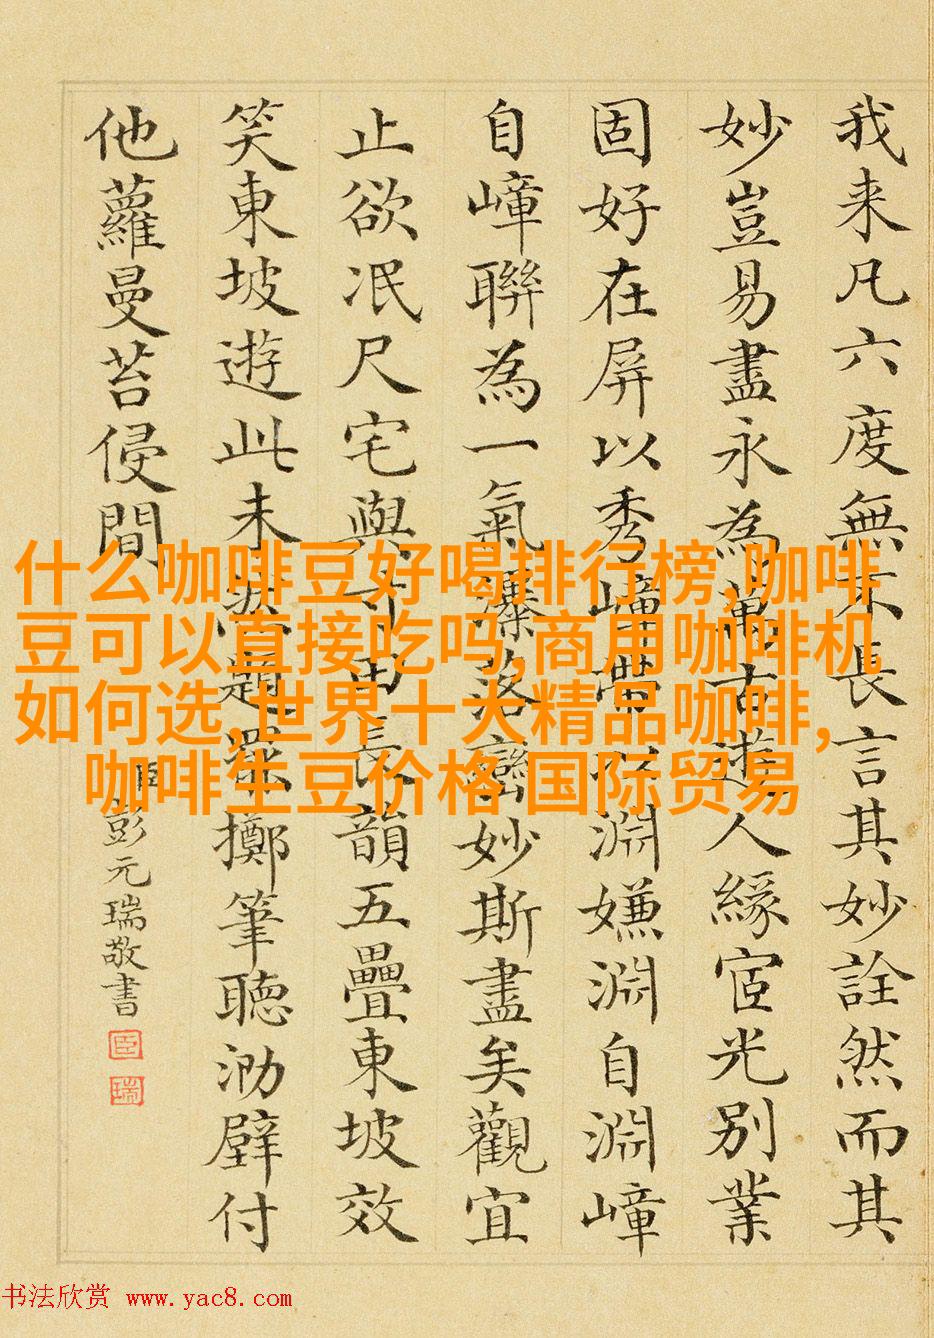 我来凡六度無不長言其妙詮然而其
妙豈易盡永為萬古遊人緣宦光別業
固好在屏以秀嶂帶以淵嫌淵自淵嶂
自嶂聯為一氣瀑落巒妙斯盡矣觀宜
止欲泯尺宅與寸田長韻五疊東坡效
笑東坡遊此未題擲筆聽泐壁付
他蘿曼苔侵間
臣彭元瑞敬書
臣
瑞
什么咖啡豆好喝排行榜,咖啡
豆可以直接吃吗,商用咖啡机
如何选,世界十大精品咖啡,
咖啡生豆价格 国际贸易
书法欣赏 www.yac8.com